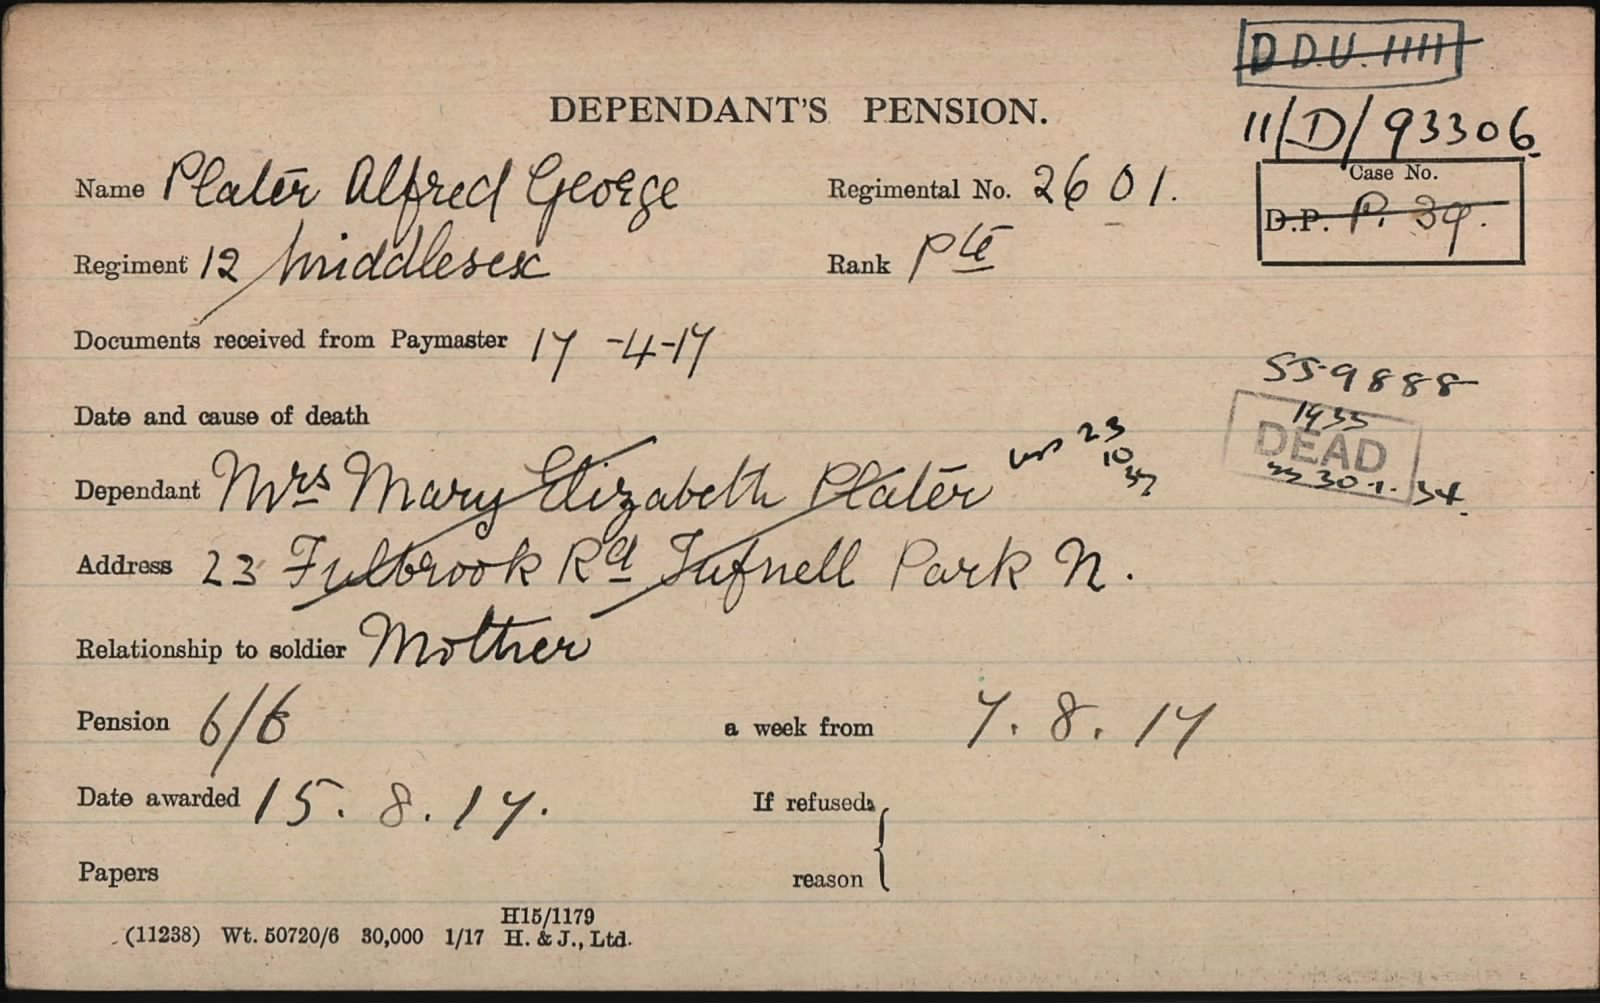 D D.U. 1111
DEPENDANT'S PENSION.
11/D/93306.
Name Plater Alfred George Regimental No. 2601.
Case No.
D.P. P. 39.
Regiment 12/Middlesex Rank Pte
Documents received from Paymaster 17-4-17
559888
Date and cause of death
1933
DEAD
30.1.34.
Dependant Mrs Mary Elizabeth Plater 23 10
Address 23 Fulbrook Rd Tufnell Park N.
Relationship to soldier Mother
Pension 6/6 a week from 7.8.17
Date awarded 15.8.17. If refused,
Papers reason
H15/1179
(11238) Wt. 50720/6 30,000 1/17 H. & J., Ltd.